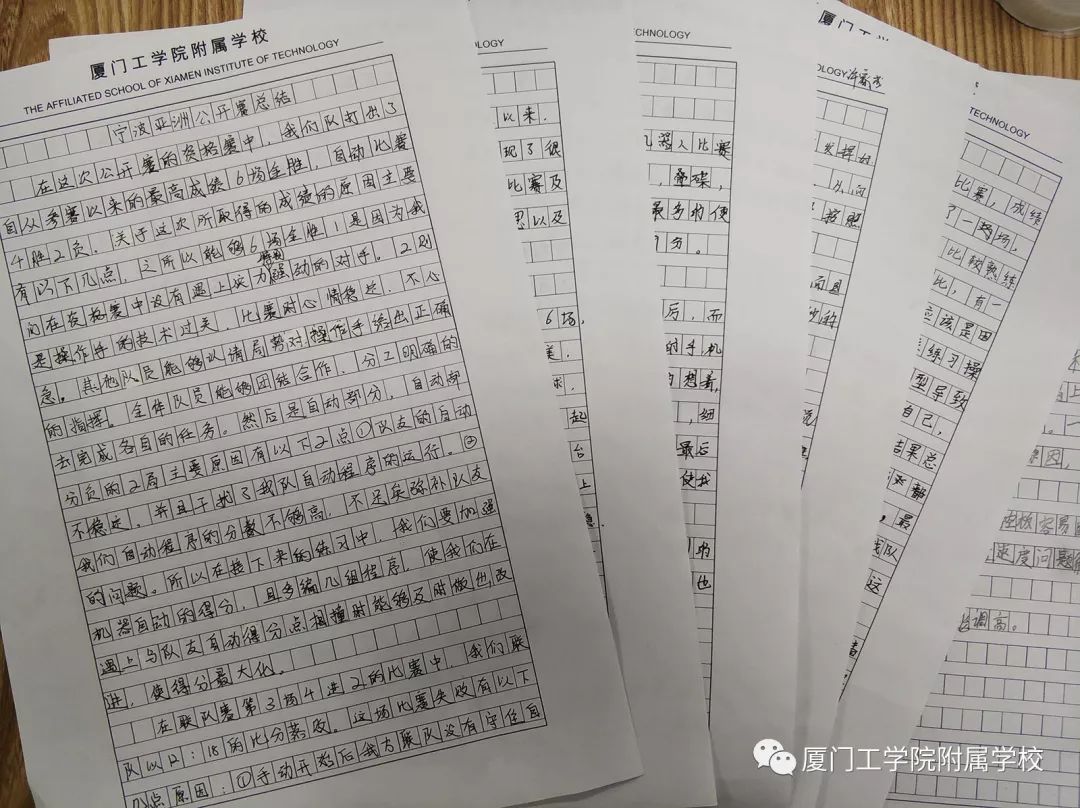 厦门工学院附属学校
THE AFFILIATED SCHOOL OF XIAMEN INSTITUTE OF TECHNOLOGY
宁波亚洲公开赛总结
在这次公开赛的资格赛中，我们队打出了
自从参赛以来的最高成绩6场全胜，自动比赛
4胜2负。关于这次所取得的成绩的原因主要
有以下几点，之所以能够6场全胜1是因为我
们在资格赛中没有遇上实力强劲的对手。2则
是操作手的技术过关，比赛时心情稳定，不心
急。其他队员能够以诸局势对操作手给出正确
的指挥。全体队员能够团结合作，分工明确的
去完成各自的任务。然后是自动部分，自动部
分负的2局主要原因有以下2点①队友的自动
不稳定，并且干扰了我队自动程序的运行。②
我们自动程序的分数不够高，不足矣弥补队友
的问题。所以在接下来的练习中，我们要加强
机器自动的得分，且多编几组程序，使我们在
遇上与队友自动得分点相撞时能够及时做出改
进，使得分最大化。
在联队赛第3场4进2的比赛中，我们联
队以12：18的比分落败。这场比赛失败有以下
几点原因：①手动开始后我方联队没有守住自
OLOGY
以来，
现了很
比赛及
以及
6场，
美，
求，
起
台
上
ECHNOLOGY
器人比赛
，叠碟，
最多的便
分。
后，而
的手机
的想着，
，细
最后
使我
的
也
厦门工
OLOGY
发挥好
，从何
按照
而且
TECHNOLOGY
比赛，成绩
了一场场，
比较熟练
比，有一
应该是因
练习操
型导致
自己，
结果总
都
，最
队
这
原因，
容易
速度问题
调高。
厦门工学院附属学校